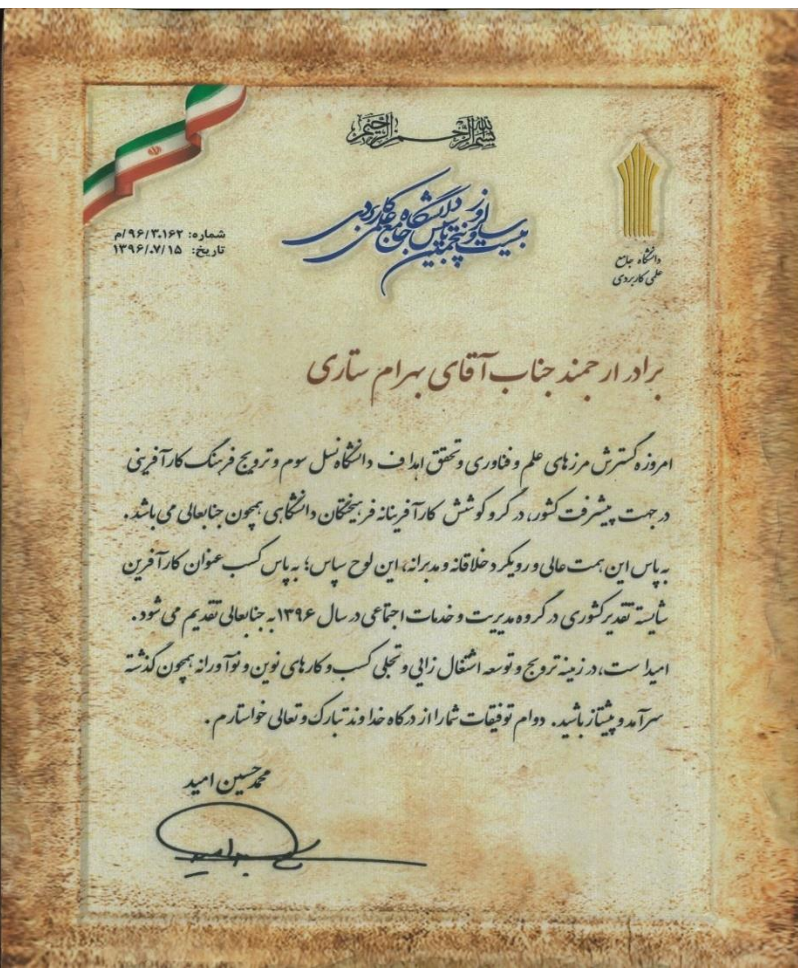 بسم الله الرحمن الرحیم
بیست و پنجمین سالروز تاسیس دانشگاه جامع علمی کاربردی
دانشگاه جامع
علمی کاربردی
شماره: ۹۶/۳۰۱۶۲/م
تاریخ: ۱۳۹۶/۰۷/۱۵
برادر ارجمند جناب آقای بهرام ستاری
امروزه گسترش مرزهای علم و فناوری و تحقق اهداف دانشگاه نسل سوم و ترویج فرهنگ کارآفرینی
در جهت پیشرفت کشور، در گرو کوشش کارآفرینانه فرهیختگان دانشگاهی همچون جنابعالی می باشد.
به پاس این همت عالی و رویکرد خلاقانه و مدبرانه، این لوح سپاس؛ به پاس کسب عنوان کارآفرین
شایسته تقدیر کشوری در گروه مدیریت و خدمات اجتماعی در سال ۱۳۹۶ به جنابعالی تقدیم می شود.
امید است، در زمینه ترویج و توسعه اشتغال زایی و تجلی کسب و کارهای نوین و نوآورانه همچون گذشته
سرآمد و پیشتاز باشید. دوام توفیقات شما را از درگاه خداوند تبارک و تعالی خواستارم.
محمد حسین امید